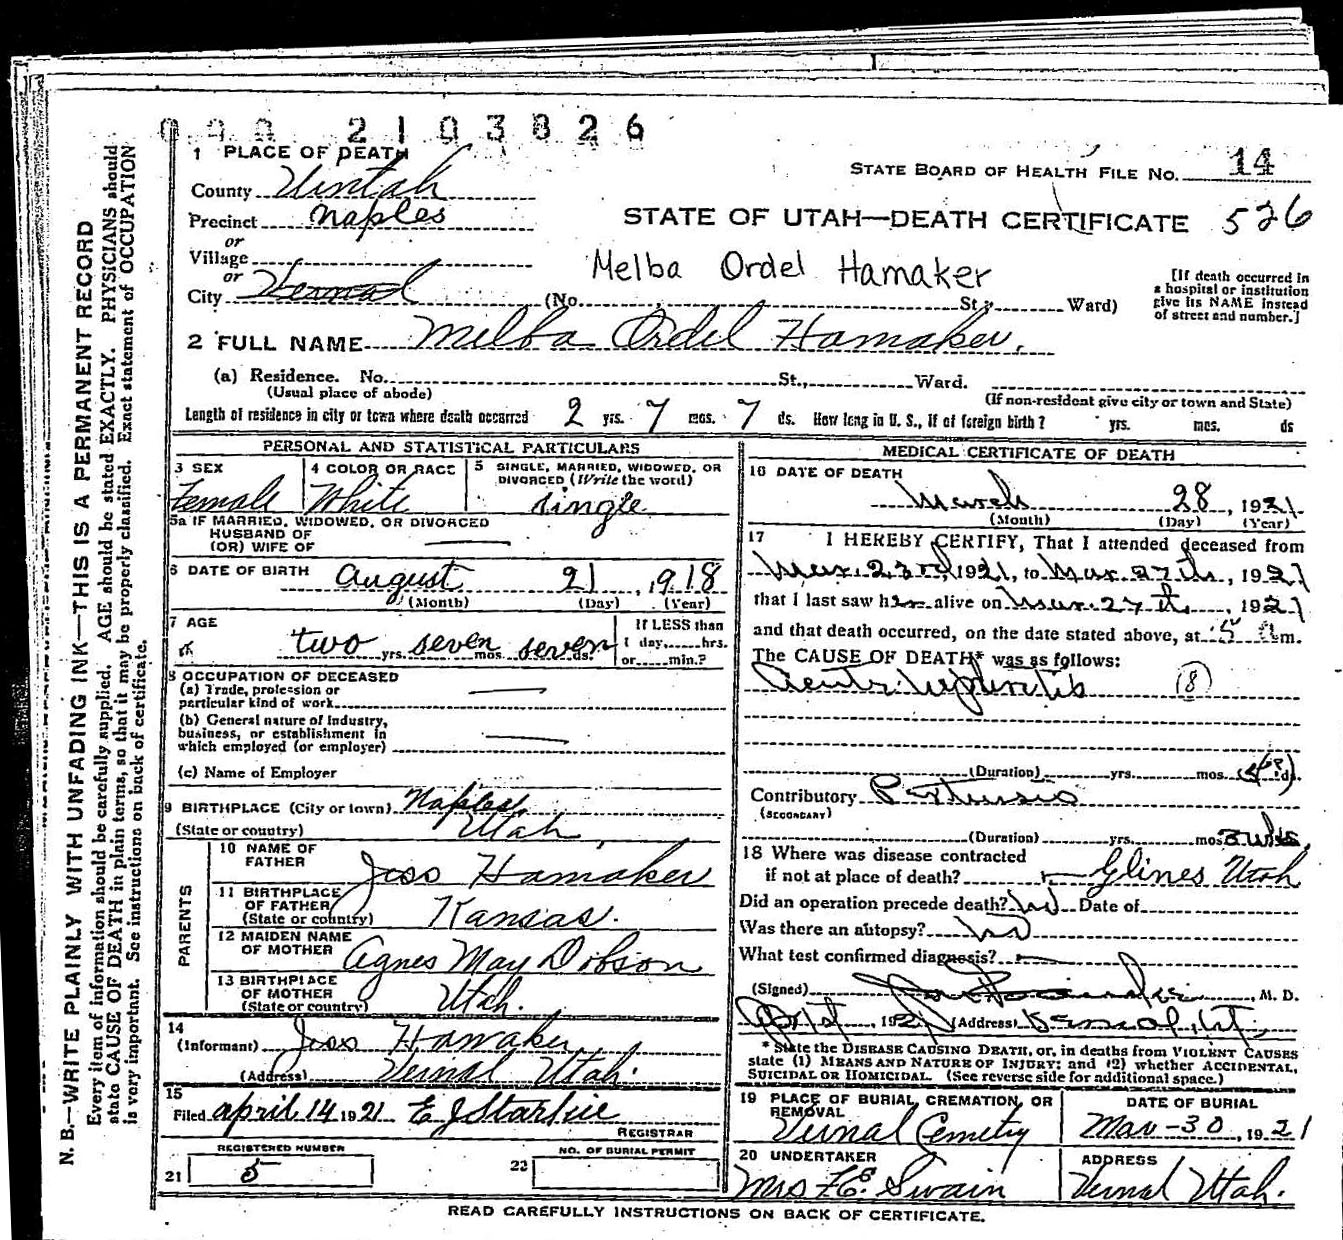 000 2103826
1 PLACE OF DEATH
STATE BOARD OF HEALTH FILE NO. 14
County Uintah
Precinct Naples
STATE OF UTAH—DEATH CERTIFICATE 526
or
Village
or
City Vernal
Melba Ordel Hamaker
(No. St.; Ward)
[If death occurred in
a hospital or institution
give its NAME instead
of street and number.]
2 FULL NAME Melba Ordel Hamaker.
(a) Residence. No. St., Ward.
(Usual place of abode)
(If non-resident give city or town and State)
Length of residence in city or town where death occurred 2 yrs. 7 mos. 7 ds. How long in U. S., if of foreign birth? yrs. mos. ds
PERSONAL AND STATISTICAL PARTICULARS
3 SEX Female
4 COLOR OR RACE White
5 SINGLE, MARRIED, WIDOWED, OR
DIVORCED (Write the word)
single
5a IF MARRIED, WIDOWED, OR DIVORCED
HUSBAND OF
(OR) WIFE OF
6 DATE OF BIRTH August 21, 1918
(Month) (Day) (Year)
7 AGE
two yrs. seven mos. seven ds.
If LESS than
1 day,......hrs.
or......min.?
8 OCCUPATION OF DECEASED
(a) Trade, profession or
particular kind of work
(b) General nature of Industry,
business, or establishment in
which employed (or employer)
(c) Name of Employer
9 BIRTHPLACE (City or town) Naples
(State or country) Utah
PARENTS
10 NAME OF
FATHER Jess Hamaker
11 BIRTHPLACE
OF FATHER
(State or country) Kansas.
12 MAIDEN NAME
OF MOTHER Agnes May Dobson
13 BIRTHPLACE
OF MOTHER
(State or country) Utah.
14
(Informant) Jess Hamaker
(Address) Vernal Utah.
15
Filed April 14 1921 E J Starkie
REGISTRAR
REGISTERED NUMBER
21 5
NO. OF BURIAL PERMIT
22
MEDICAL CERTIFICATE OF DEATH
16 DATE OF DEATH
March 28, 1921
(Month) (Day) (Year)
17 I HEREBY CERTIFY, That I attended deceased from
Mar. 23rd, 1921, to Mar. 27th, 1921
that I last saw her alive on Mar. 27th, 1921
and that death occurred, on the date stated above, at 5 a m.
The CAUSE OF DEATH* was as follows:
Acute (8)
(Duration) yrs. mos. ds.
Contributory Pertussis
(SECONDARY)
(Duration) yrs. mos. 3 wks.
18 Where was disease contracted
if not at place of death? Glines Utah
Did an operation precede death? No Date of
Was there an autopsy? No
What test confirmed diagnosis?
(Signed) , M. D.
, 1921 (Address) Vernal, Ut
* State the DISEASE CAUSING DEATH, or, in deaths from VIOLENT CAUSES
state (1) MEANS AND NATURE OF INJURY; and (2) whether ACCIDENTAL,
SUICIDAL OR HOMICIDAL. (See reverse side for additional space.)
19 PLACE OF BURIAL, CREMATION, OR
REMOVAL
Vernal Cemetry
DATE OF BURIAL
Mar - 30, 1921
20 UNDERTAKER
Mrs F.E. Swain
ADDRESS
Vernal Utah.
READ CAREFULLY INSTRUCTIONS ON BACK OF CERTIFICATE.
N. B.—WRITE PLAINLY WITH UNFADING INK—THIS IS A PERMANENT RECORD
Every item of information should be carefully supplied. AGE should be stated EXACTLY. PHYSICIANS should
state CAUSE OF DEATH in plain terms, so that it may be properly classified. Exact statement of OCCUPATION
is very important. See instructions on back of certificate.